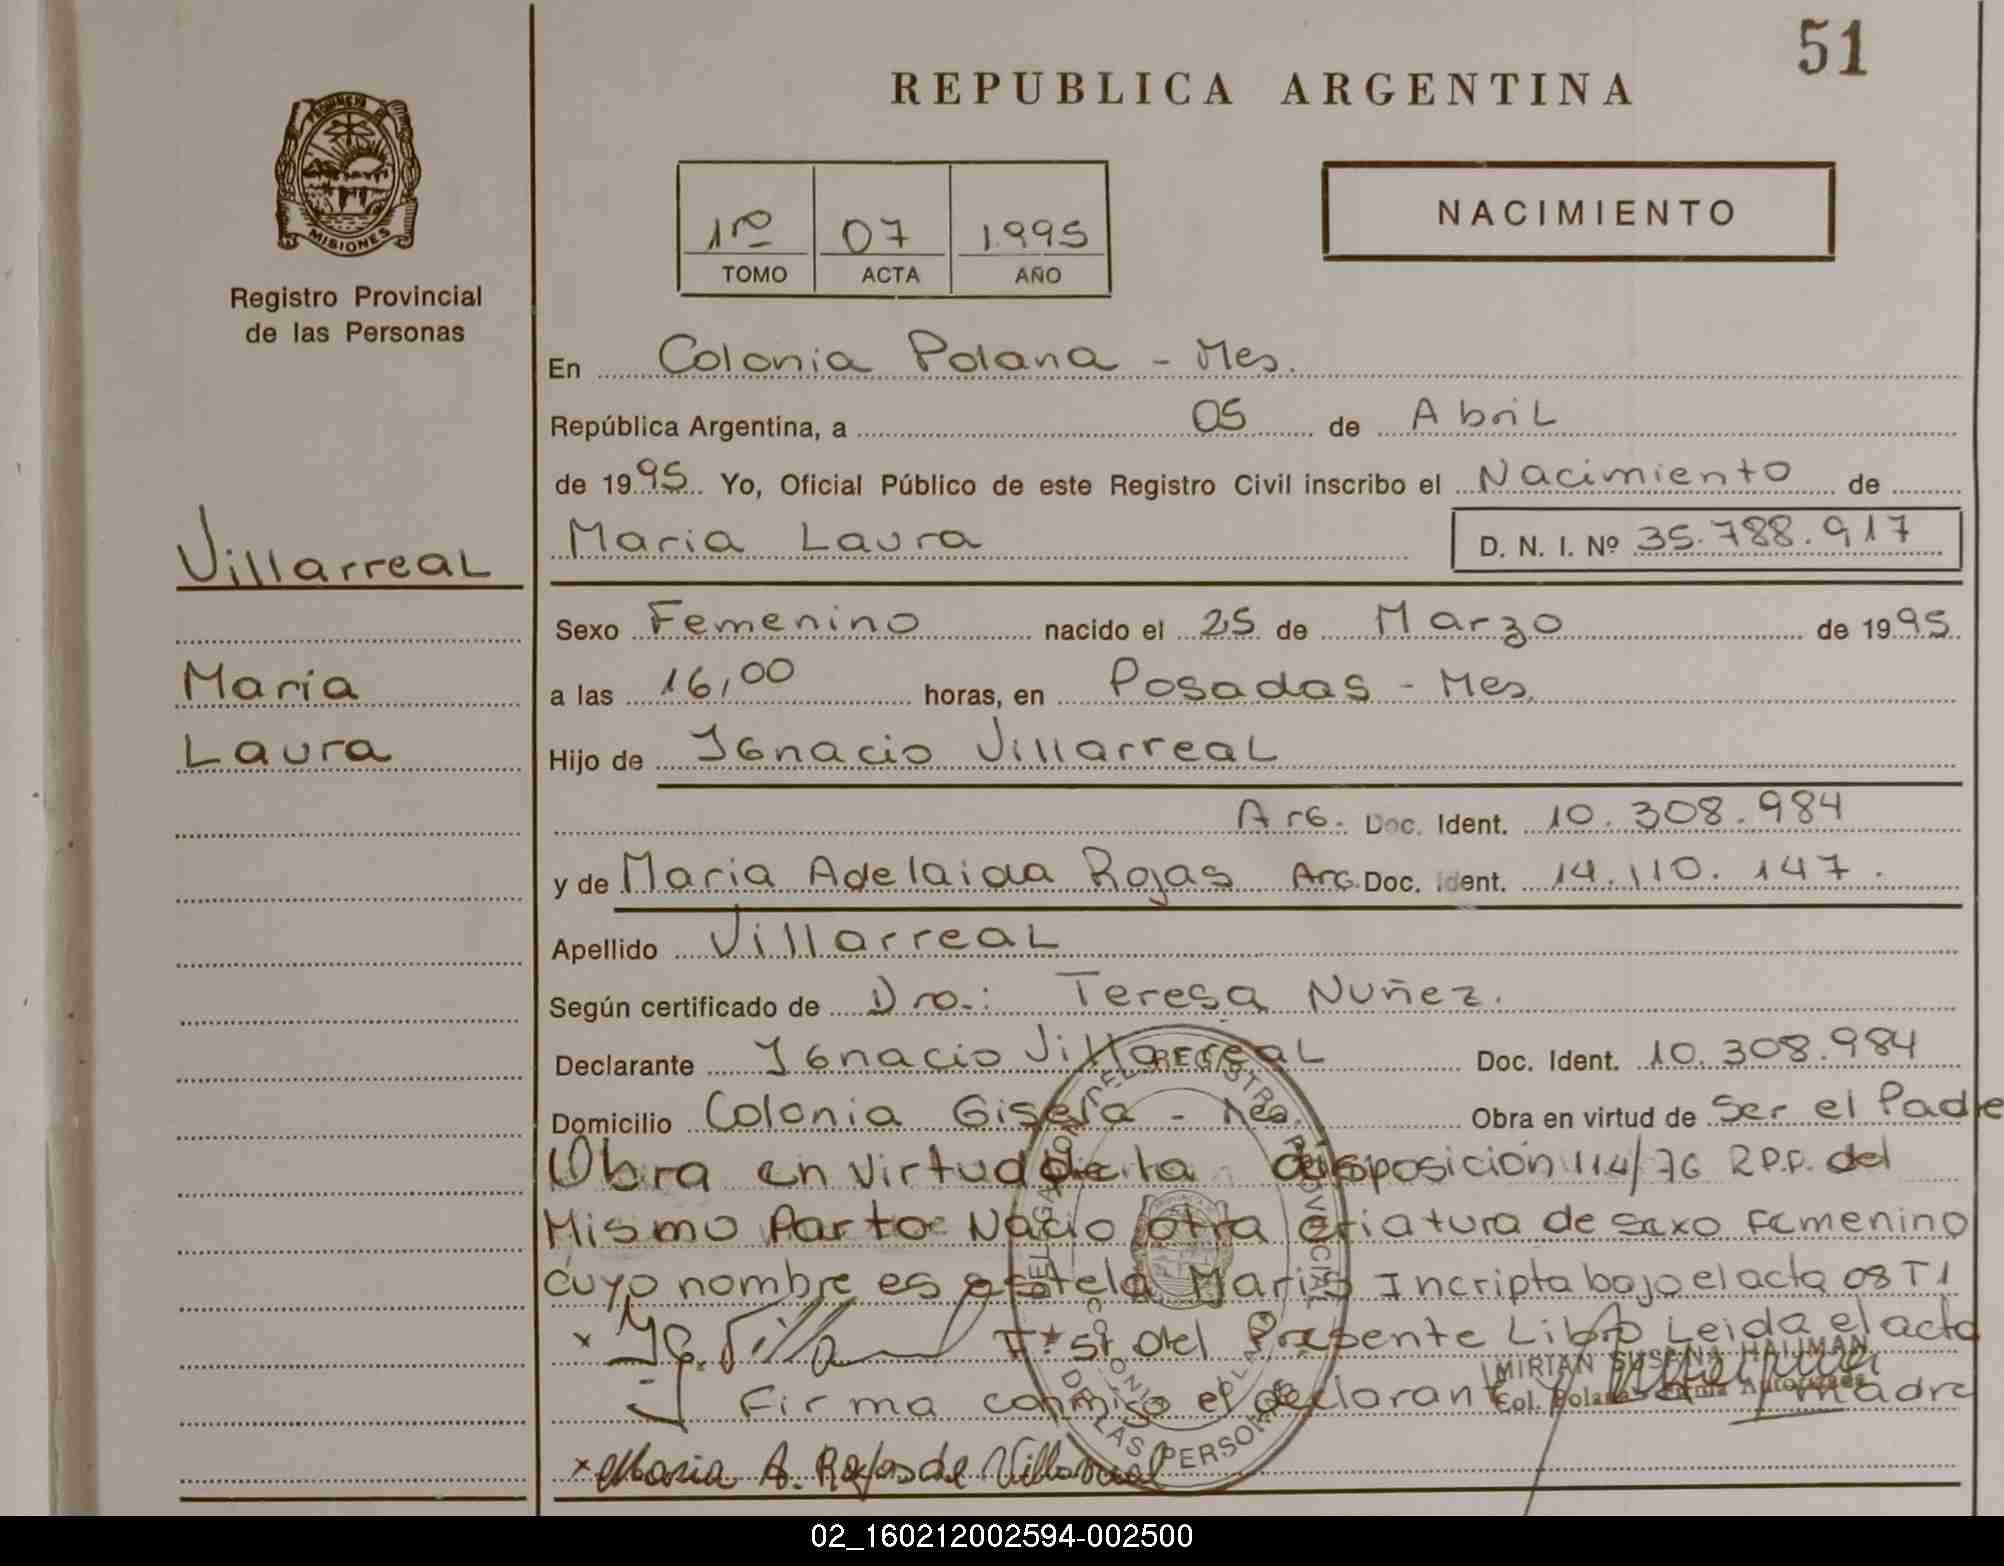 51
REPUBLICA ARGENTINA
MISIONES
Registro Provincial
de las Personas
1ro 07 1995
TOMO ACTA AÑO
NACIMIENTO
En Colonia Polana - Mes.
República Argentina, a 05 de Abril
de 1995 Yo, Oficial Público de este Registro Civil inscribo el Nacimiento de
Maria Laura D. N. I. Nº 35.788.917
Villarreal
Maria
Laura
Sexo Femenino nacido el 25 de Marzo de 1995
a las 16,00 horas, en Posadas - Mes.
Hijo de Ignacio Villarreal
Arg. Doc. Ident. 10.308.984
y de Maria Adelaida Rojas Arg. Doc. Ident. 14.110.147.
Apellido Villarreal
Según certificado de Dra.: Teresa Nuñez.
Declarante Ignacio Villarreal Doc. Ident. 10.308.984
Domicilio Colonia Gisela - Mes. Obra en virtud de Ser el Padre
Obra en virtud de la disposición 114/76 R.P.P. del
Mismo Parto Nacio otra criatura de sexo Femenino
cuyo nombre es estela Maris Incripta bajo el acta 08 T1
Fº 51 del Presente Libro Leida el acta
Firma conmigo el declarante y la madre
x Maria A. Rojas de Villarreal
DELEGACION DEL REGISTRO PROVINCIAL
DE LAS PERSONAS
MIRIAN SUSANA HAIJMAN
Col. Polana - Firma Autorizada
02_160212002594-002500